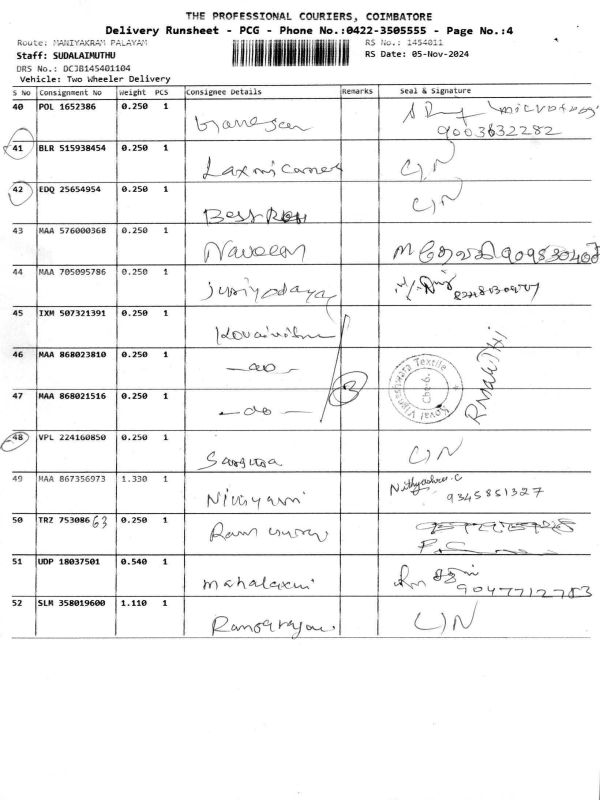 THE PROFESSIONAL COURIERS, COIMBATORE
Delivery Runsheet - PCG - Phone No.:0422-3505555 - Page No.:4
Route: MANIYAKRAM PALAYAM RS No.: 1454011
Staff: SUDALAIMUTHU RS Date: 05-Nov-2024
DRS No.: DCJB145401104
Vehicle: Two Wheeler Delivery
S No Consignment No Weight PCS Consignee Details Remarks Seal & Signature
40 POL 1652386 0.250 1
9003632282
41 BLR 515938454 0.250 1 Laxmi C/N
42 EDQ 25654954 0.250 1 Best C/N
43 MAA 576000368 0.250 1 Naveen
44 MAA 705095786 0.250 1
45 IXM 507321391 0.250 1
46 MAA 868023810 0.250 1 -do-
47 MAA 868021516 0.250 1 -do- 3 Kovai Vigneshwara Textile Cbe-6.
48 VPL 224160850 0.250 1 C/N
49 MAA 867356973 1.330 1 Nithyashree.C
9345851327
50 TRZ 75308663 0.250 1
51 UDP 18037501 0.540 1 mahalaxmi
9047712783
52 SLM 358019600 1.110 1 C/N